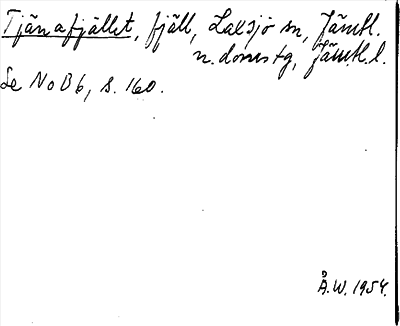 Tjänafjället, fjäll, Laxsjö sn, Jämtl.
n. doms tg, Jämtl. l.
Se NoB 6, s. 160.
Å.W. 1954.